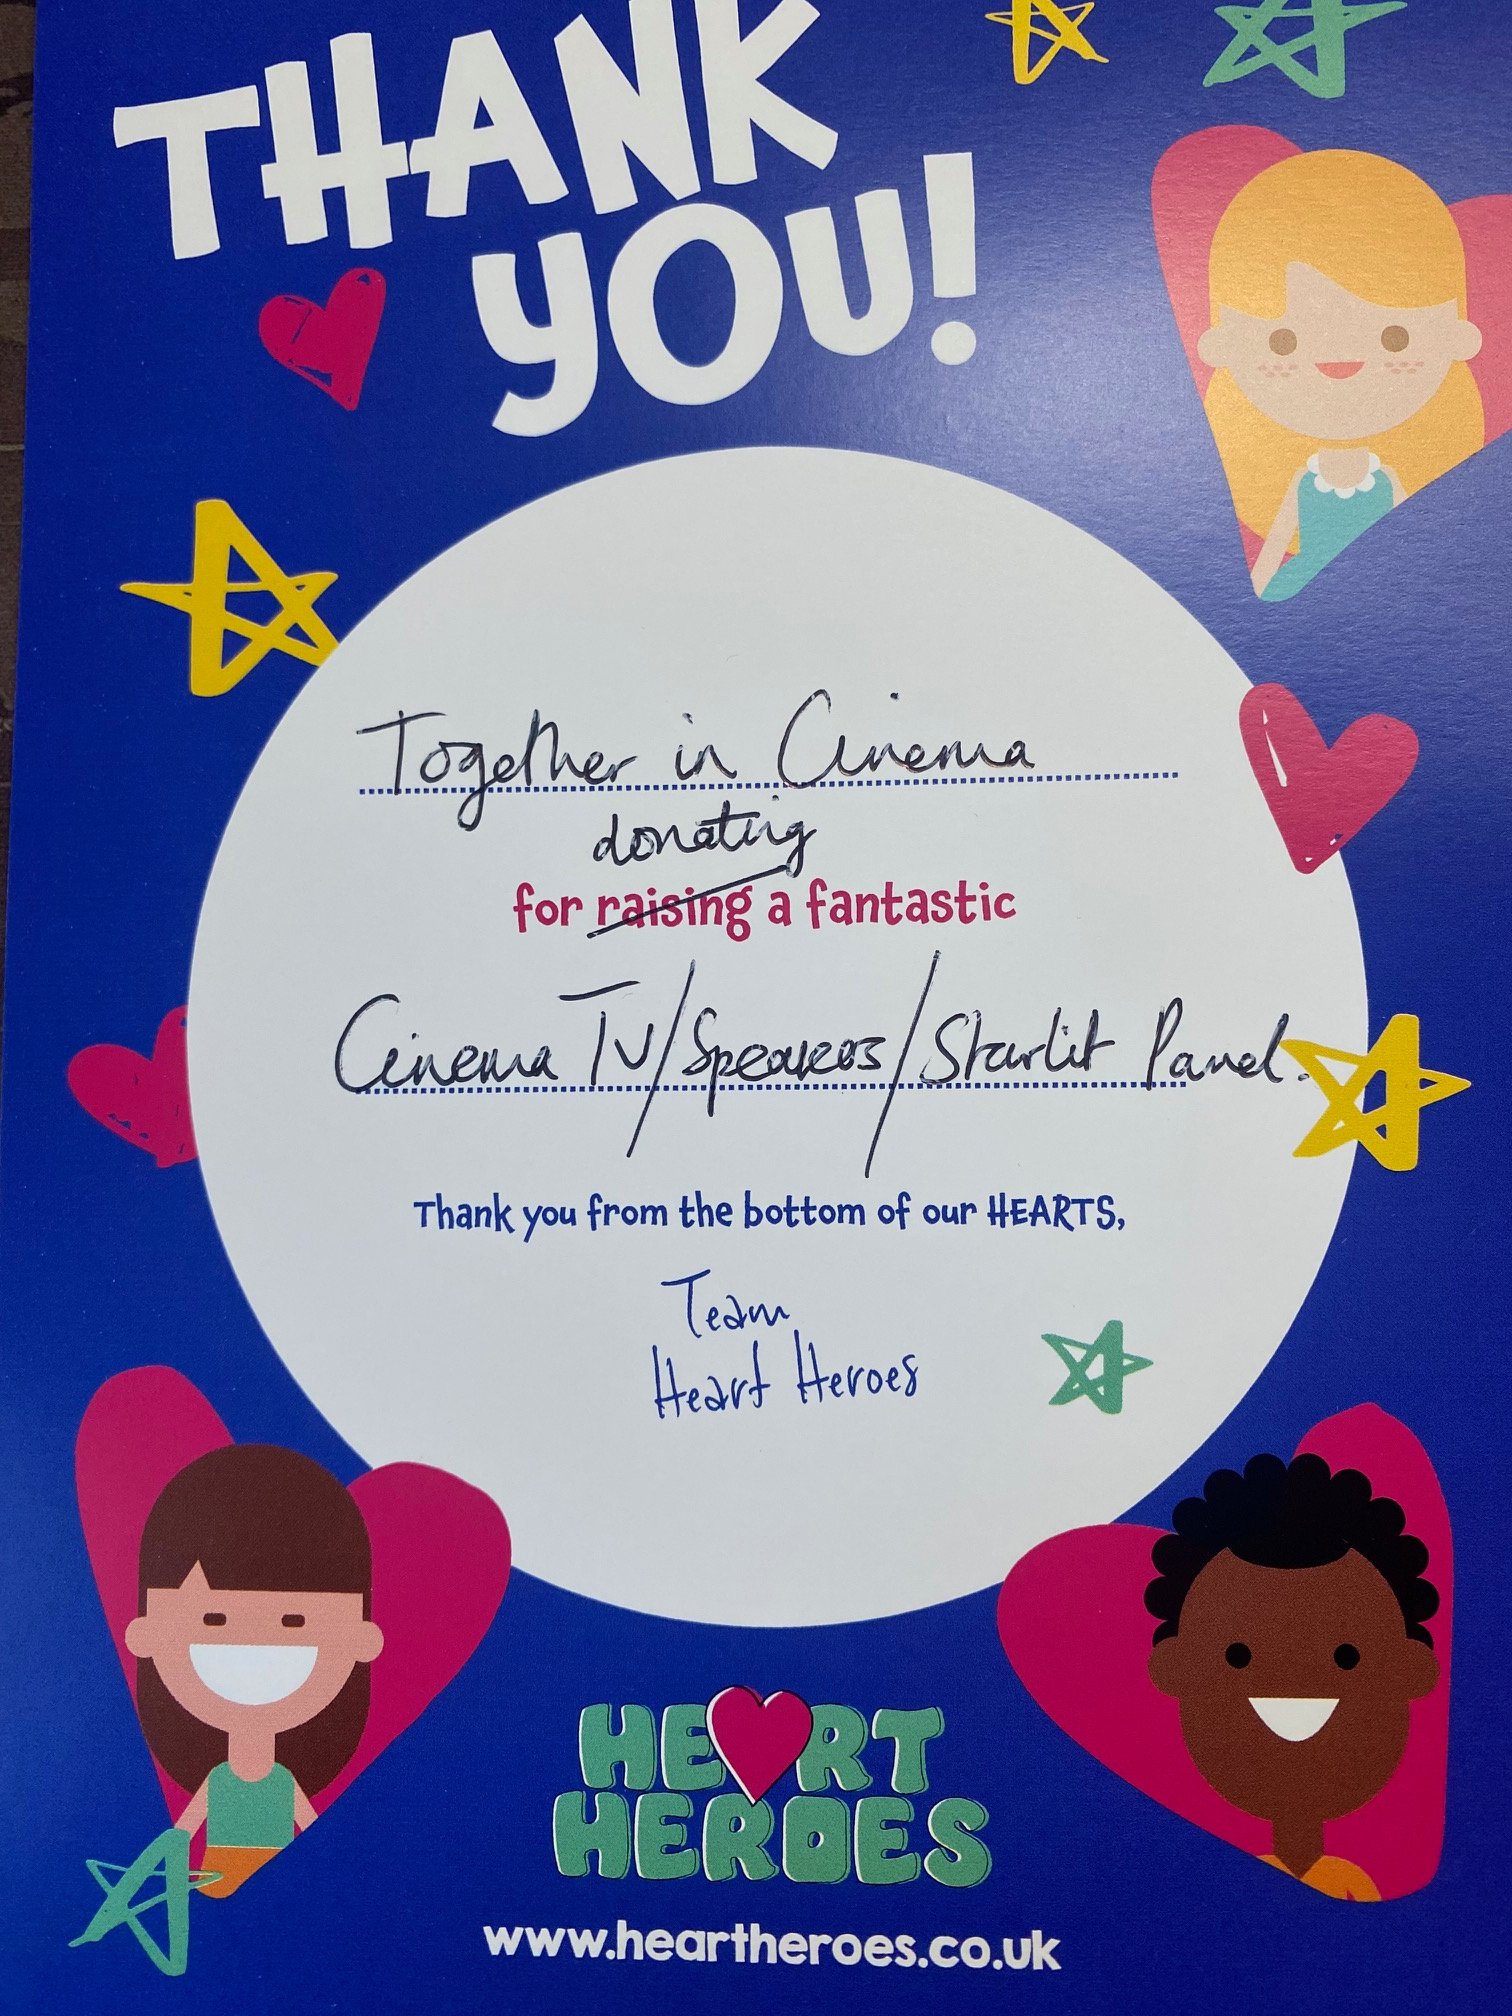 THANK
YOU!
Together in Cinema
donating
for raising a fantastic
Cinema TV/Speakers/Starlit Panel.
Thank you from the bottom of our HEARTS,
Team
Heart Heroes
HEART
HEROES
www.heartheroes.co.uk